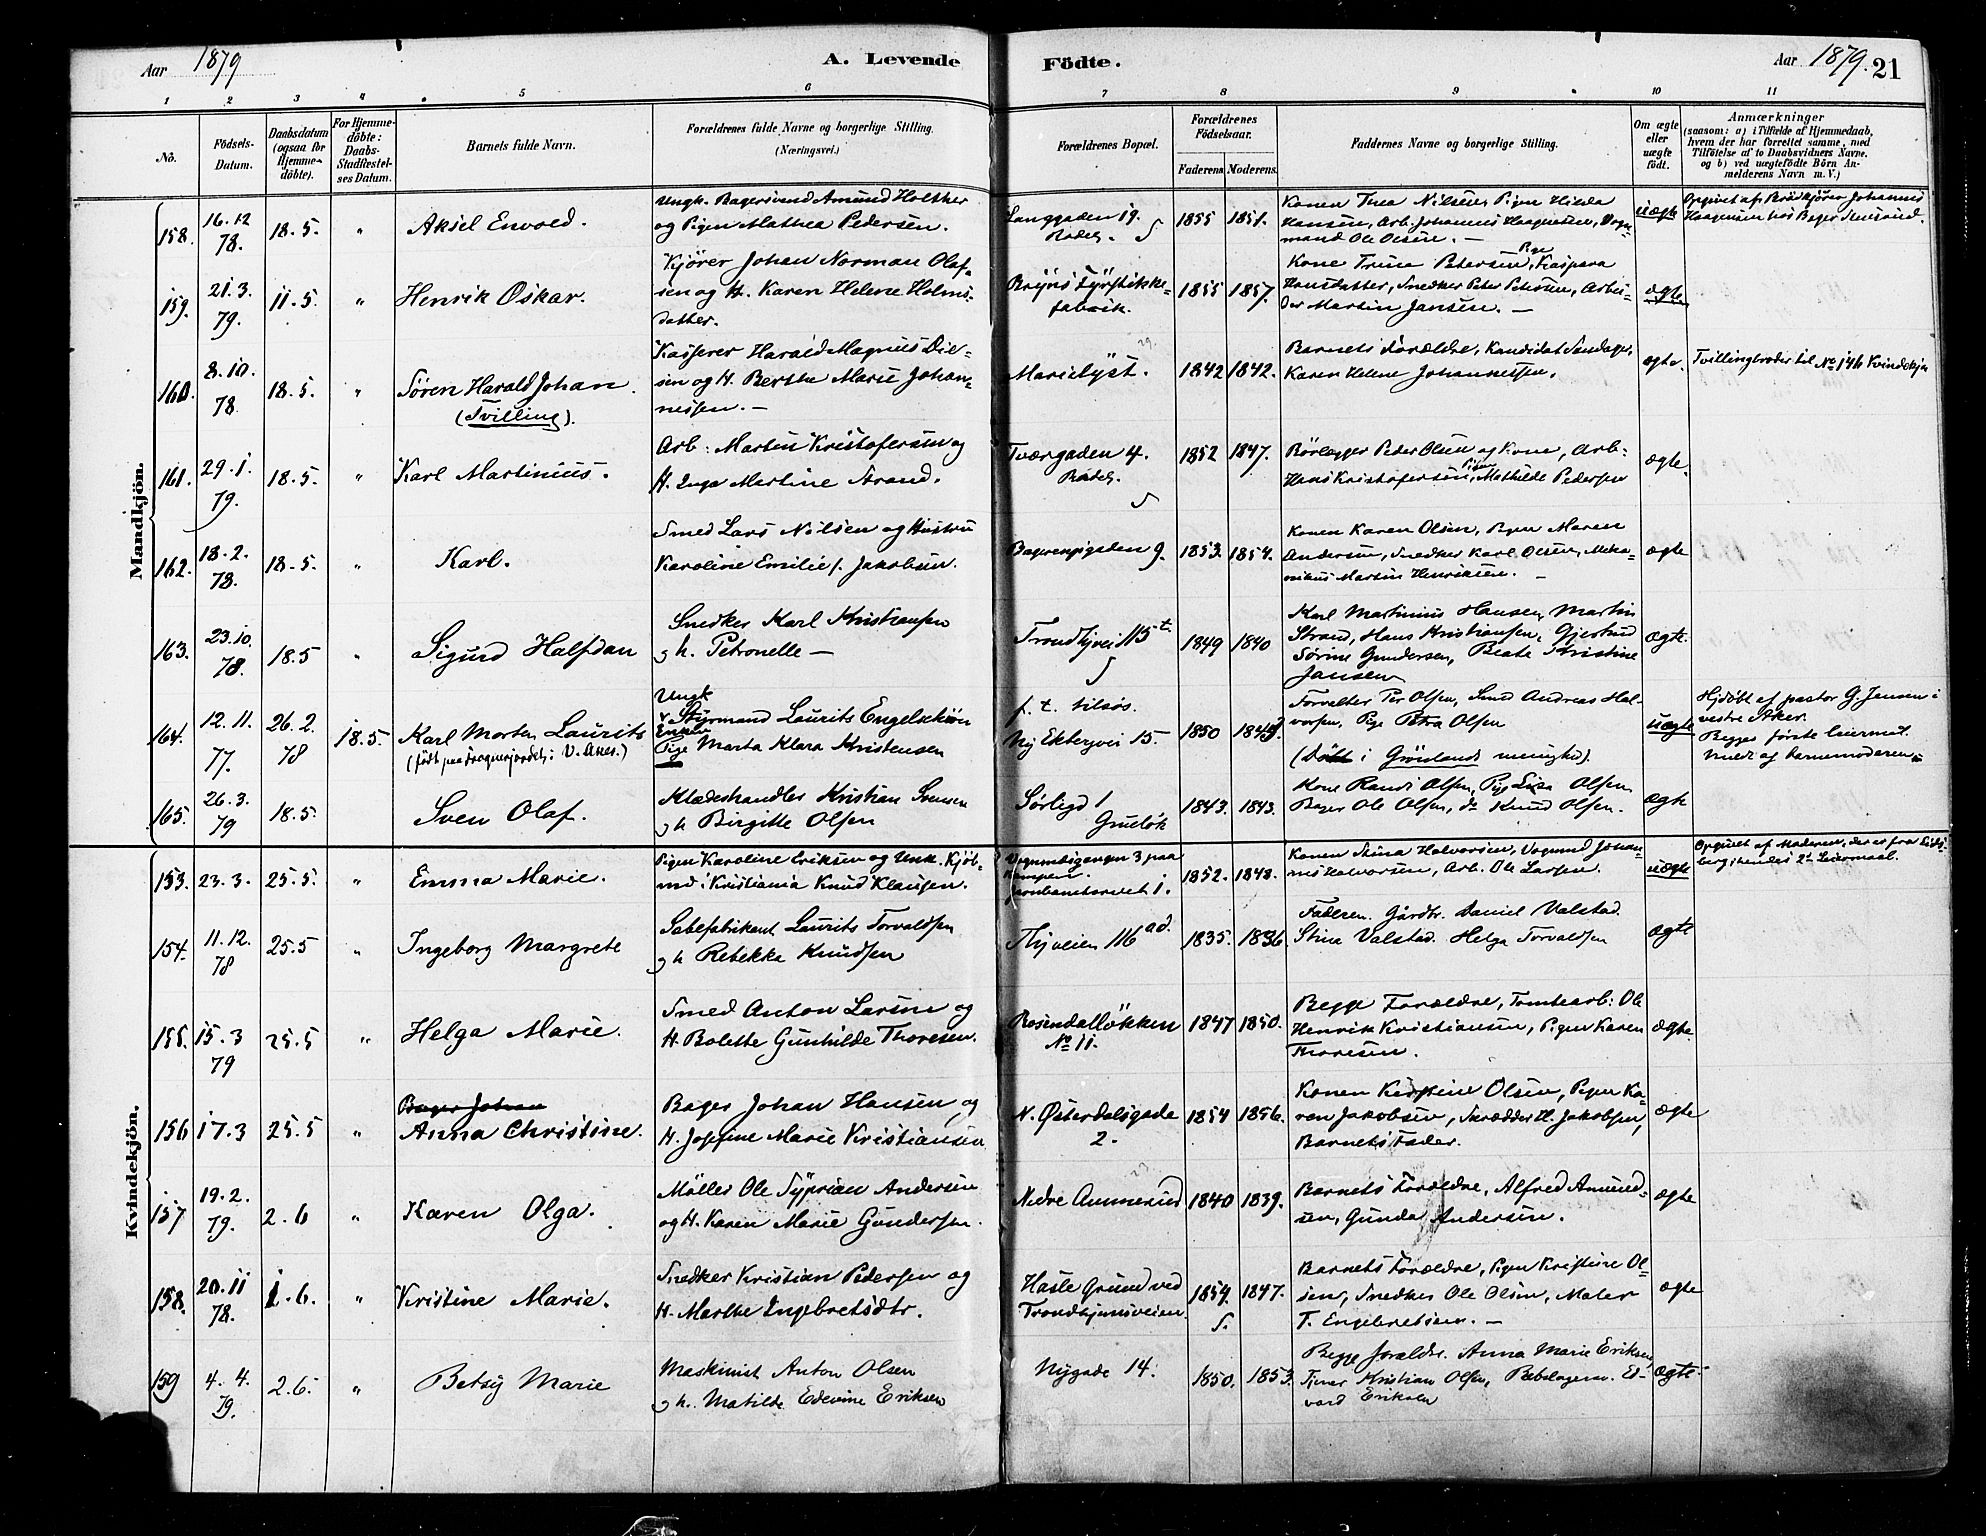 Aar 1879
A. Levende Födte.
Aar 1879. 21
1 2 3 4 5 6 7 8 9 10 11
No.
Födsels-
Datum.
Daabsdatum
(ogsaa för
Hjemme-
döbte).
For Hjemme-
döbte:
Daabs-
Stadfestel-
ses Datum.
Barnets fulde Navn.
Forældrenes fulde Navne og borgerlige Stilling.
(Næringsvei.)
Forældrenes Bopæl.
Forældrenes
Födselsaar.
Faderens Moderens.
Faddernes Navne og borgerlige Stilling.
Om ægte
eller
uægte
födt.
Anmærkninger
(saasom: a) i Tilfælde af Hjemmedaab,
hvem der har forrettet samme, med
Tilföielse af to Daabsvidners Navne.
og b) ved uægtefödte Börn An-
melderens Navn m. V.)
Mandkjön.
158. 16.12 78. 18.5. " Aksel Envold.
Ungk. Bagersvend Amund Holther
og Pigen Mathea Pedersen.
Langgaden 19.
Rodel.
1855 1851.
Konen Thea Nilsen, Pigen Hilda
Hansen, Arb. Johannes Haagensen, Vogn-
mand Ole Olsen. —
uægte
Opgivet af Brödkjörer Johannes
Haagensen hos Bager
159. 21.3. 79. 11.5. " Henrik Oskar.
Kjörer Johan Norman Olaf-
sen og H. Karen Helene Holms-
datter.
Bryns Fyrstikke-
fabrik.
1855 1857.
Kone Trine Petersen, Pige Kaspara
Hansdatter, Snedker Peter Petersen, Arbei-
der Martin Jansen. —
ægte
160. 8.10. 78. 18.5. " Sören Harald Johan.
(Tvilling).
Kasserer Harald Magnus Die-
sen og H. Berthe Marie Johan-
nessen. —
Marielyst.
1842 1842.
Barnets Forældre, Kandidat
Karen Helene Johannessen.
ægte.
Tvillingbroder til No 146 Kvindekjön
161. 29.1. 79. 18.5. " Karl Martinius.
Arb: Martin Kristofersen og
H. Inga Martine Strand.
Tværgaden 4.
Rodel.
1852 1847.
Rörlegger Peder Olsen og Kone, Arb:
Hans Kristofersen, Pigen Mathilde Pedersen
ægte.
162. 18.2. 78. 18.5. " Karl.
Smed Lars Nilsen og Hustru
Karoline Emilie f. Jakobsen.
Bagerengsgaden 9.
1853. 1854.
Konen Karen Olsen, Pigen Maren
Andersen, Snedker Karl Olsen, Meka-
nikus Martin Henriksen. —
ægte
163. 23.10. 78. 18.5 " Sigurd Halfdan
Snedker Karl Kristiansen
og h. Petronelle —
Trondhjvei 115 t.
1849 1840
Karl Martinius Hansen, Martin
Strand, Hans Kristiansen, Gjertrud
Sörine Gundersen, Beate Kristine
Jansen
ægte.
164. 12.11. 77. 26.2. 78 18.5. Karl Morten Laurits
(födt paa Frognerjordet i V. Aker.)
Ungk
& Styrmand Laurits Engelschiön
Enke
Pige Marta Klara Kristensen
f. t. tilsös.
Ny Ekbergvei 15.
1850 1849
Forvalter Per Olsen, Smed Andreas Hal-
vorsen, Pige Petra Olsen
(Döbt i Grönlands menighed).
uægte
Hjdöbt af pastor G. Jensen i
vestre Aker.
Begges förste leiermaal.
Meldt af barnemoderen.
165. 26.3. 79 18.5. Sven Olaf.
Klædeshandler Kristian Svensen
og h Birgitte Olsen
Sörligd 1
Grueløk
1843. 1843.
Kone Randi Olsen, Pige Lisa Olsen
Bager Ole Olsen, do Knud Olsen.
ægte
Kvindekjön.
153. 23.3. 25.5. " Emma Marie.
Pigen Karoline Eriksen og Unk. Kjöb-
md i Kristiania Knud Klausen.
Vognmdsgangen 3 paa
Kampen.
Jernbanetorvet 1.
1852. 1848.
Konen Stina Halvorsen, Vognmd Johan-
nes Halvorsen, Arb. Ole Larsen.
uægte
Opgivet af Moderen, der er fra Eids-
berg; hendes 2det Leiermaal.
154. 11.12. 78 25.5 " Ingeborg Margrete
Sæbefabrikant Laurits Torvaldsen
og h Rebekka Knudsen
Thjveien 116 ad.
1835. 1836
Faderen. Gårdbr. Daniel Valstad.
Stina Valstad. Helga Torvaldsen
ægte
155. 15.3 79 25.5 " Helga Marie.
Smed Anton Larsen og
H. Bolette Gunhilde Thoresen.
Rosendalløkken
No 11.
1847 1850.
Begge Forældre, Tomtearb: Ole
Henrik Kristiansen, Pigen Karen
Thoresen.
ægte.
156 17.3 25.5 " Bager Johan
Anna Christine.
Bager Johan Hansen og
H. Josefine Marie Kristiansen
N. Østerdalsgade
2.
1854 1856.
Konen Kirstine Olsen, Pigen Ka-
ren Jakobsen, Skrædder H. Jakobsen,
Barnets Fader.
ægte
157 19.2. 79. 2.6 " Karen Olga.
Möller Ole Syprian Andersen
og H. Karen Marie Gundersen.
Nedre Ammerud
1840 1839.
Barnets Forældre, Alfred Amund-
sen, Gunda Andersen.
ægte
158. 20.11 78. 1.6. " Kristine Marie.
Snedker Kristian Pedersen og
H. Marthe Ingebretsdtr.
Hasle Grund ved
Trondhjemsveien.
1854. 1847.
Barnets Forældre, Pigen Kristine Ol-
sen, Snedker Ole Olsen, Maler
T. Engebretsen. —
ægte
159 4.4. 79. 2.6. " Betsy Marie
Maskinist Anton Olsen
og h. Matilde Edevine Eriksen
Nygade 14.
1850. 1853.
Begge foraldre. Anna Marie Eriksen
Tjener Kristian Olsen, Ed-
vard Eriksen
ægte.